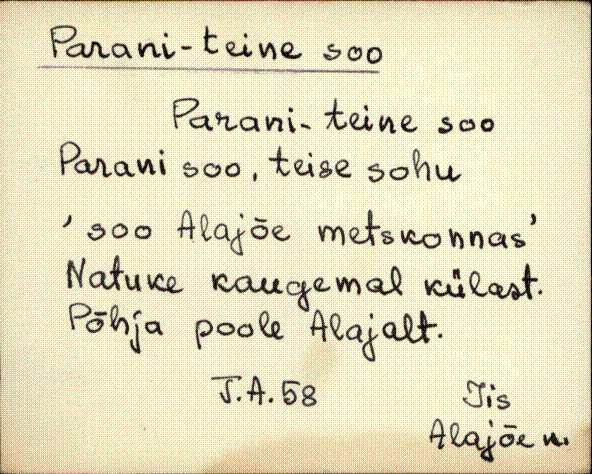 Parani-teine soo
Parani-teine soo
Parani soo, teise sohu
'soo Alajõe metskonnas'
Natuke kaugemal külast.
Põhja poole Alajalt.
J.A. 58
Iis
Alajõe n.